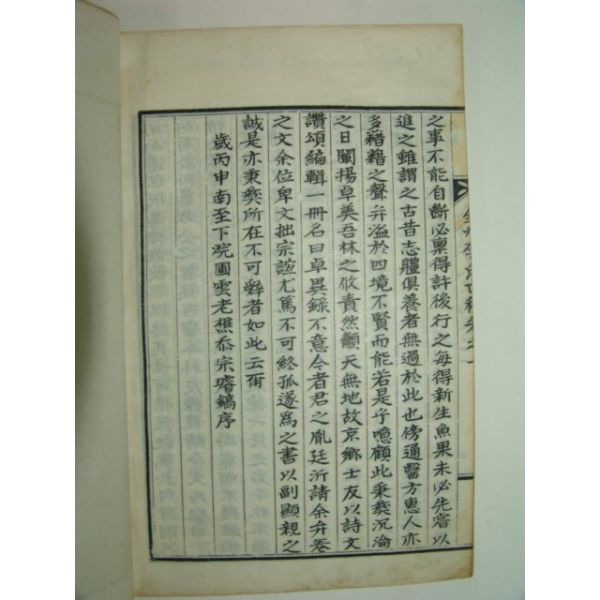 之事不能自斷必稟得許後行之每得新生魚果未必先嘗以
進之雖謂之古昔志體俱養者無過於此也傍通醫方惠人亦
多藉藉之聲弁溢於四境不賢而能若是乎噫顧此秉彜沉淪
之日闡揚卓美吾林之攸責然顧天無地故京鄉士友以詩文
讚頌編輯一冊名曰卓異錄不意今者君之胤廷沂請余弁卷
之文余位卑文拙宗誼尤篤不可終孤遂爲之書以副顯親之
誠是亦秉彜所在不可辭者如此云爾
歲丙申南至下浣圃雲老樵忝宗 鎬序